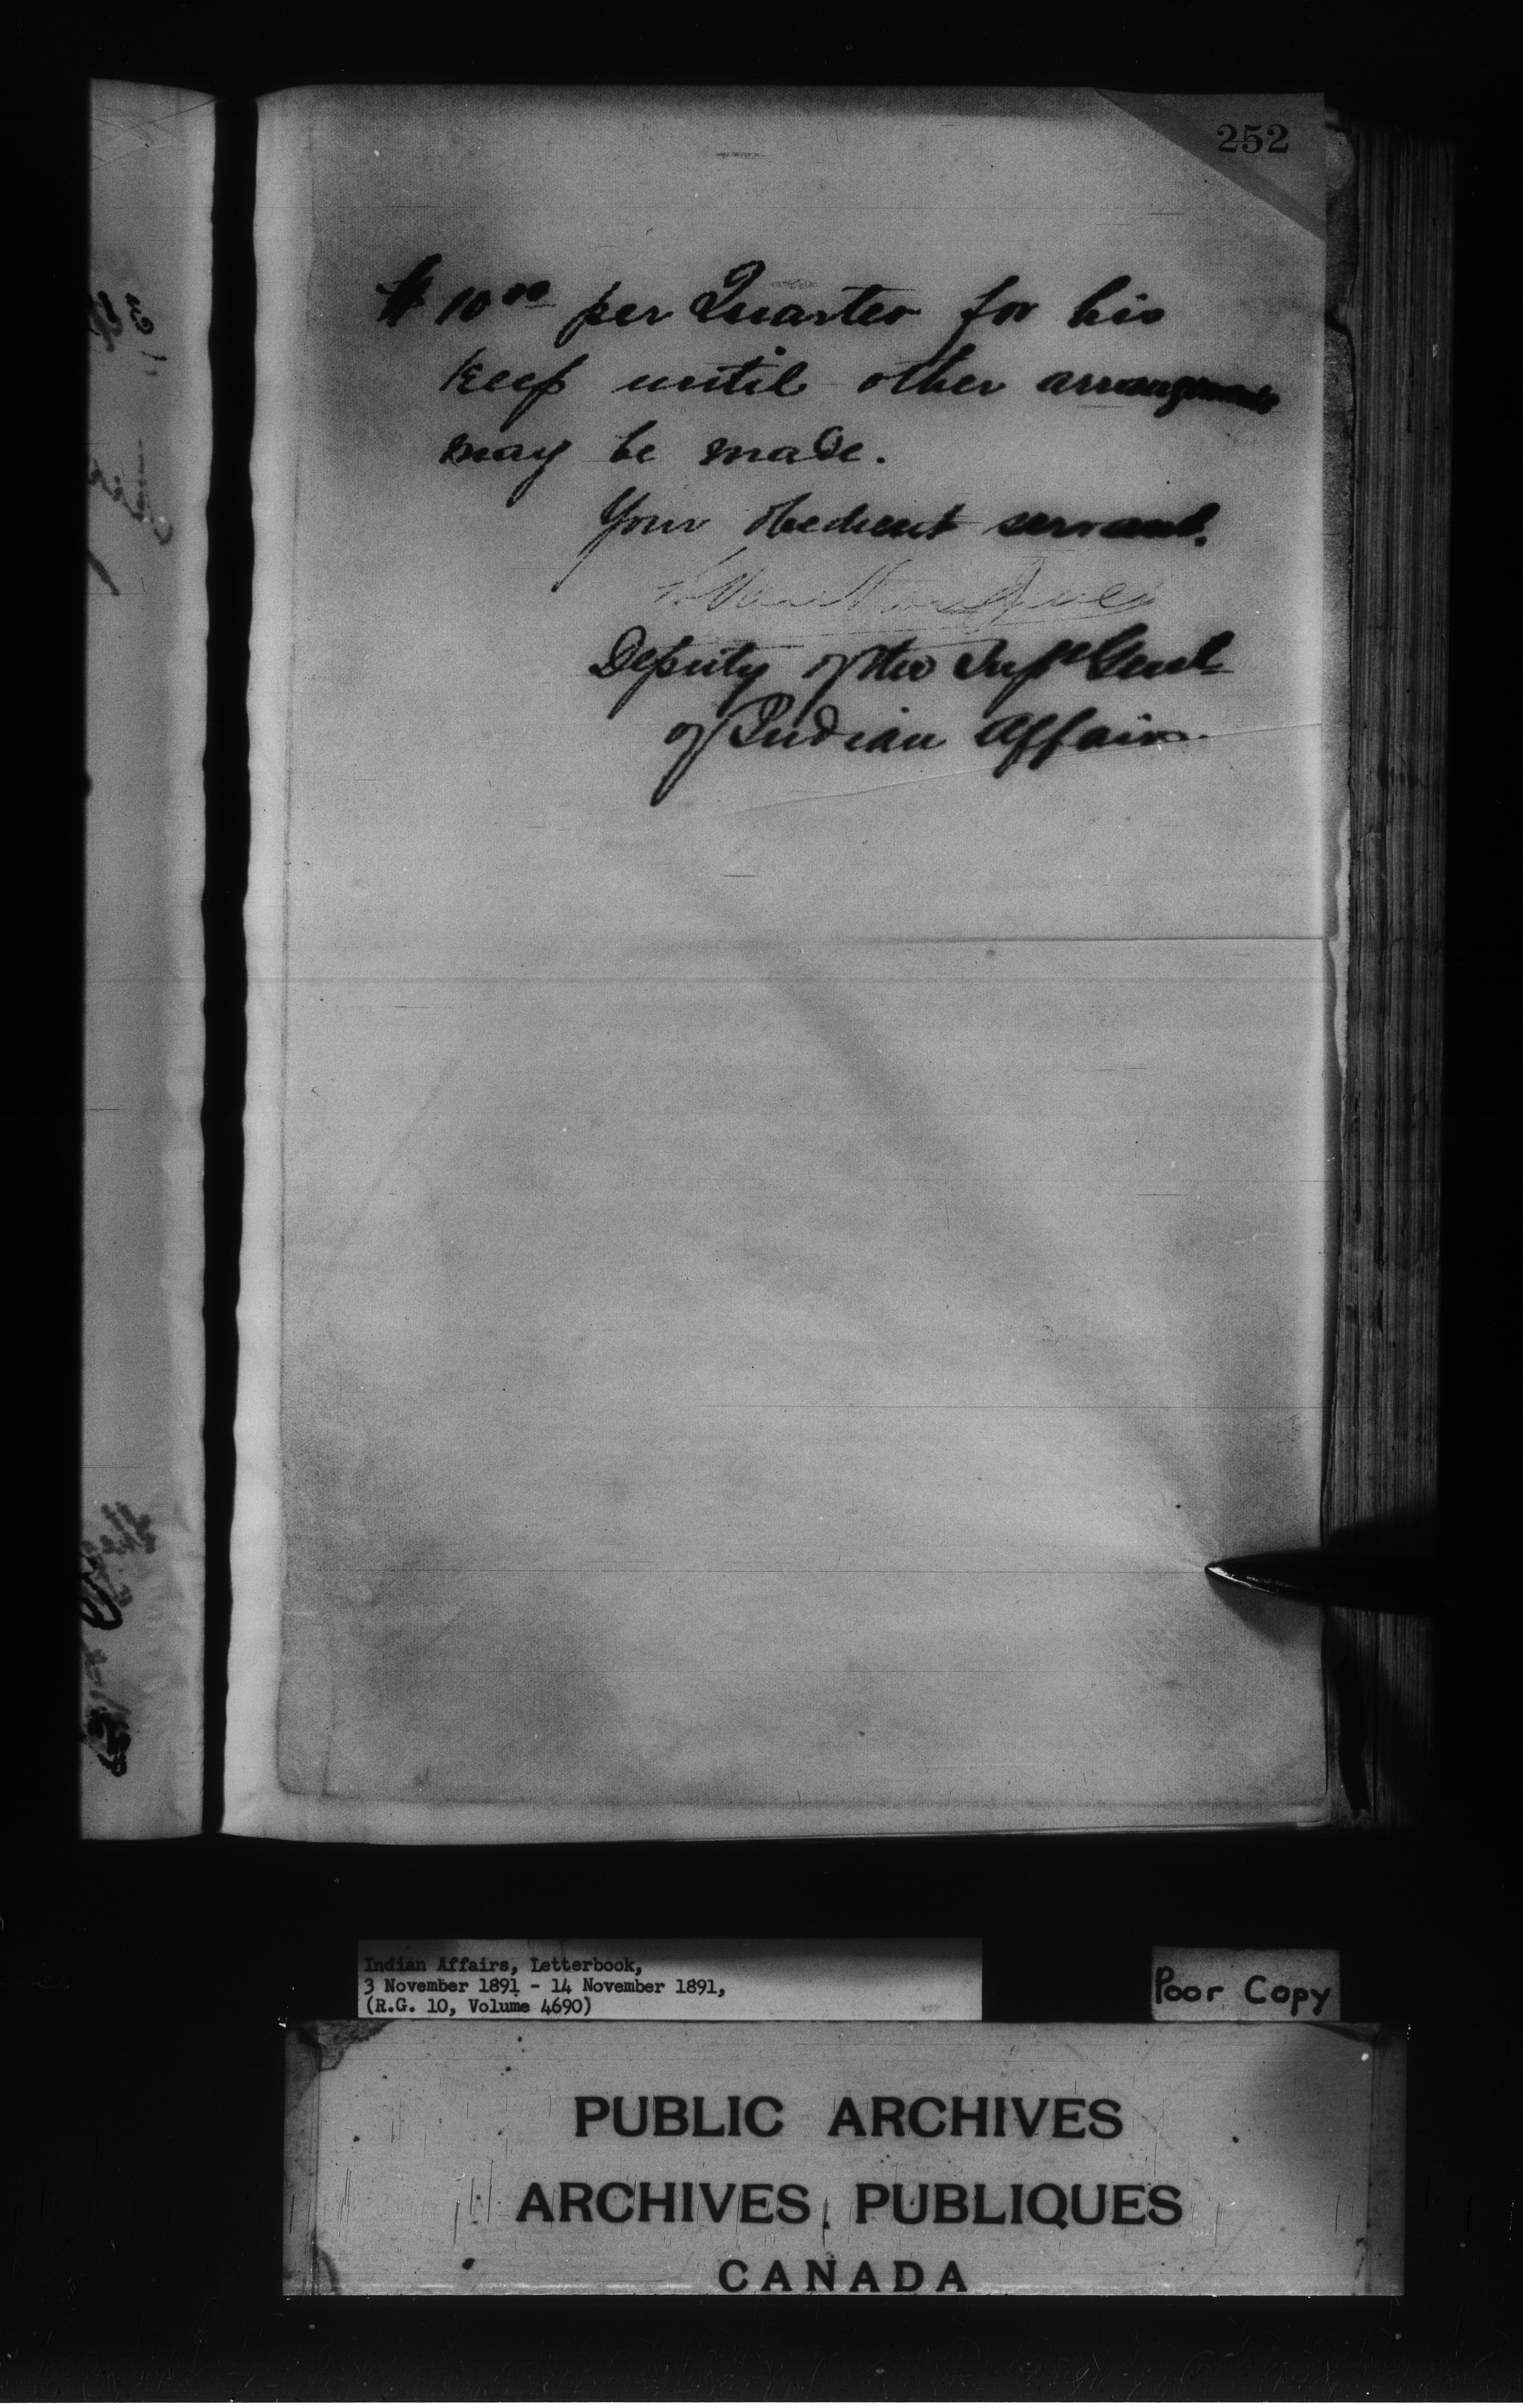 252
$10.00 per Quarter for his
keep until other arrangements
may be made.
Your obedient servant.
L. Vankoughnet
Deputy of the Supt Genl
of Indian Affairs.
Indian Affairs, Letterbook,
3 November 1891 - 14 November 1891,
(R.G. 10, Volume 4690)
Poor Copy
PUBLIC ARCHIVES
ARCHIVES PUBLIQUES
CANADA